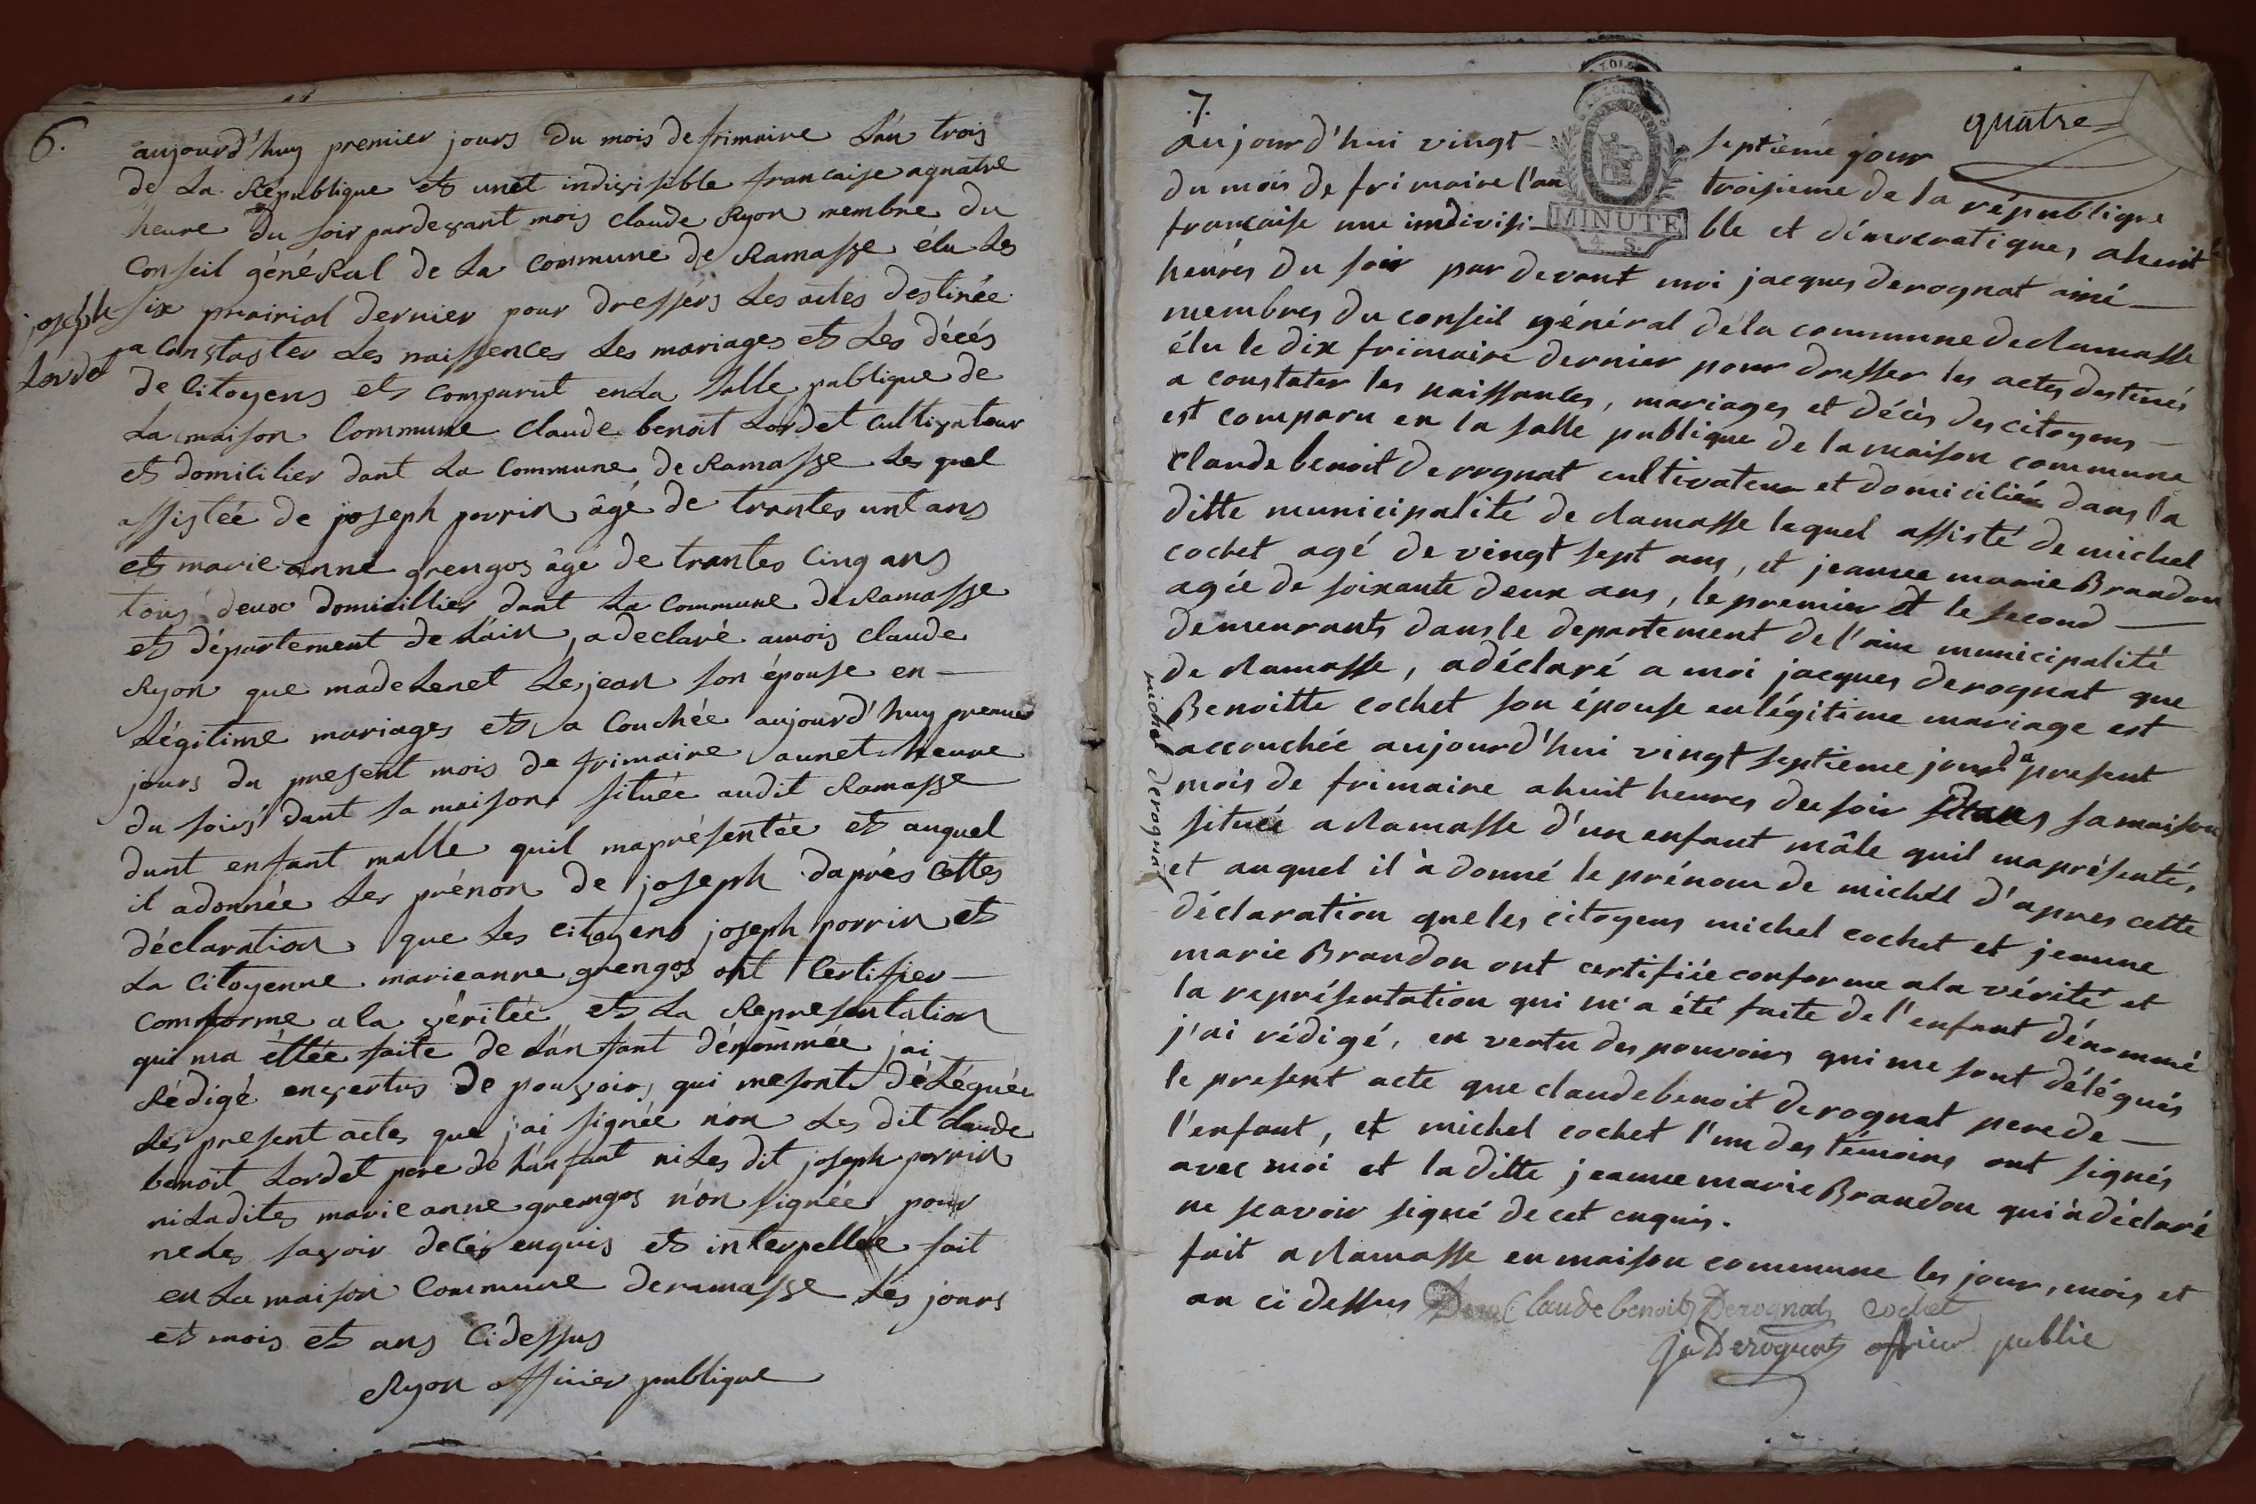 6.
aujourd'huy premier jours du mois de frimaire L'an trois
de La République et unet indivisible francaise aquatre
heure du soir pardevant mois Claude Ryon membre du
Conseil généRal de La Commune de Ramasse élu Les
six prairial dernier pour dressérs Les actes destinée
joseph
Lordet
a Constaster Les naissences Les mariages et Les décés
de Citoyens et Comparut enLa salle publique de
La maison Commune Claude benoit Lordet Cultivateur
et domicilier dant La Commune de Ramasse Les quel
assistée de joseph porrin âgé de trantes unt ans
et marie anne grengos âgé de trantes Cinq ans
tous deux domicillier dant La Commune de Ramasse
et département de L'ain, a declaré amois Claude
Ryon que madeLenet Lejean son épouse en —
Légitime mariages et a Couchée aujourd'huy premier
jours du present mois de frimaire aunet heure
du soirs dant sa maison située audit Ramasse
dunt enfant malle quil maprésentée et auquel
il adonnée Les prénon de joseph daprés Cettes
déclaration que Les Citoyens joseph porrin et
La Citoyenne marieanne grengos ont Certiffier —
Comforme a la véritée et La Representation
qui ma éttée faite de L'anfant dénommée jai
Rédigé envertus de pouvoirs qui mesont déLéguée
Les present actes que j'ai signée non Les dit Claude
benoit Lordet pere de L'anfant ni Les dit joseph porrin
ni Ladites marie anne grengos n'on signée pour
ne Les savoir deCes enquis et interpellée fait
en La maison Commune deramasse Les jours
et mois et ans Cidessus
Ryon officier publique
7.
quatre
Aujourd'hui vingt — septième jour
du mois de frimaire l'an troisieme de la république
française une indivisi — ble et démocratique, ahuit
MINUTE
4. S.
heures du soir par devant moi jacques derognat ainé —
membres du conseil général de la commune de Ramasse
élu le dix frimaire dernier pour dresser les actes destinés
a constater les naissances, mariages et décès des citoyens —
est comparu en la salle publique de la maison commune
claude benoit derognat cultivateur et domicilié dans la
ditte municipalité de Ramasse lequel assisté de michel
cochet agé de vingt sept ans, et jeanne marie Brandon
agée de soixante deux ans, le premier et le second —
demeurants dans le departement de l'ain municipalité
de Ramasse, a déclaré a moi jacques derognat que
Benoitte cochet son épouse en légitime mariage est
accouchée aujourd'hui vingt septieme jour du present
mois de frimaire a huit heures du soir dans sa maison
située a Ramasse d'un enfant mâle quil ma présenté,
michel derognat
et auquel il à donné le prénom de michel d'apres cette
déclaration que les citoyens michel cochet et jeanne
marie Brandon ont certifiée conforme a la vérité et
la représentation qui m'a été faite de l'enfant dénommé
j'ai rédigé, en vertu des pouvoirs qui me sont délégués
le present acte que claude benoit derognat pere de —
l'enfant, et michel cochet l'un des témoins ont signés
avec moi et la ditte jeanne marie Brandon qui à déclaré
ne scavoir signé de cet enquis.
fait a Ramasse en maison commune les jour, mois et
an ci dessus Claude benoit Derognat cochet
Ja Derognat officier public